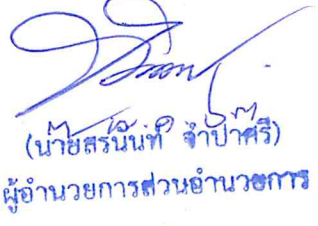 (นายสรนันท์ จำปาศรี)
ผู้อำนวยการส่วนอำนวยการ